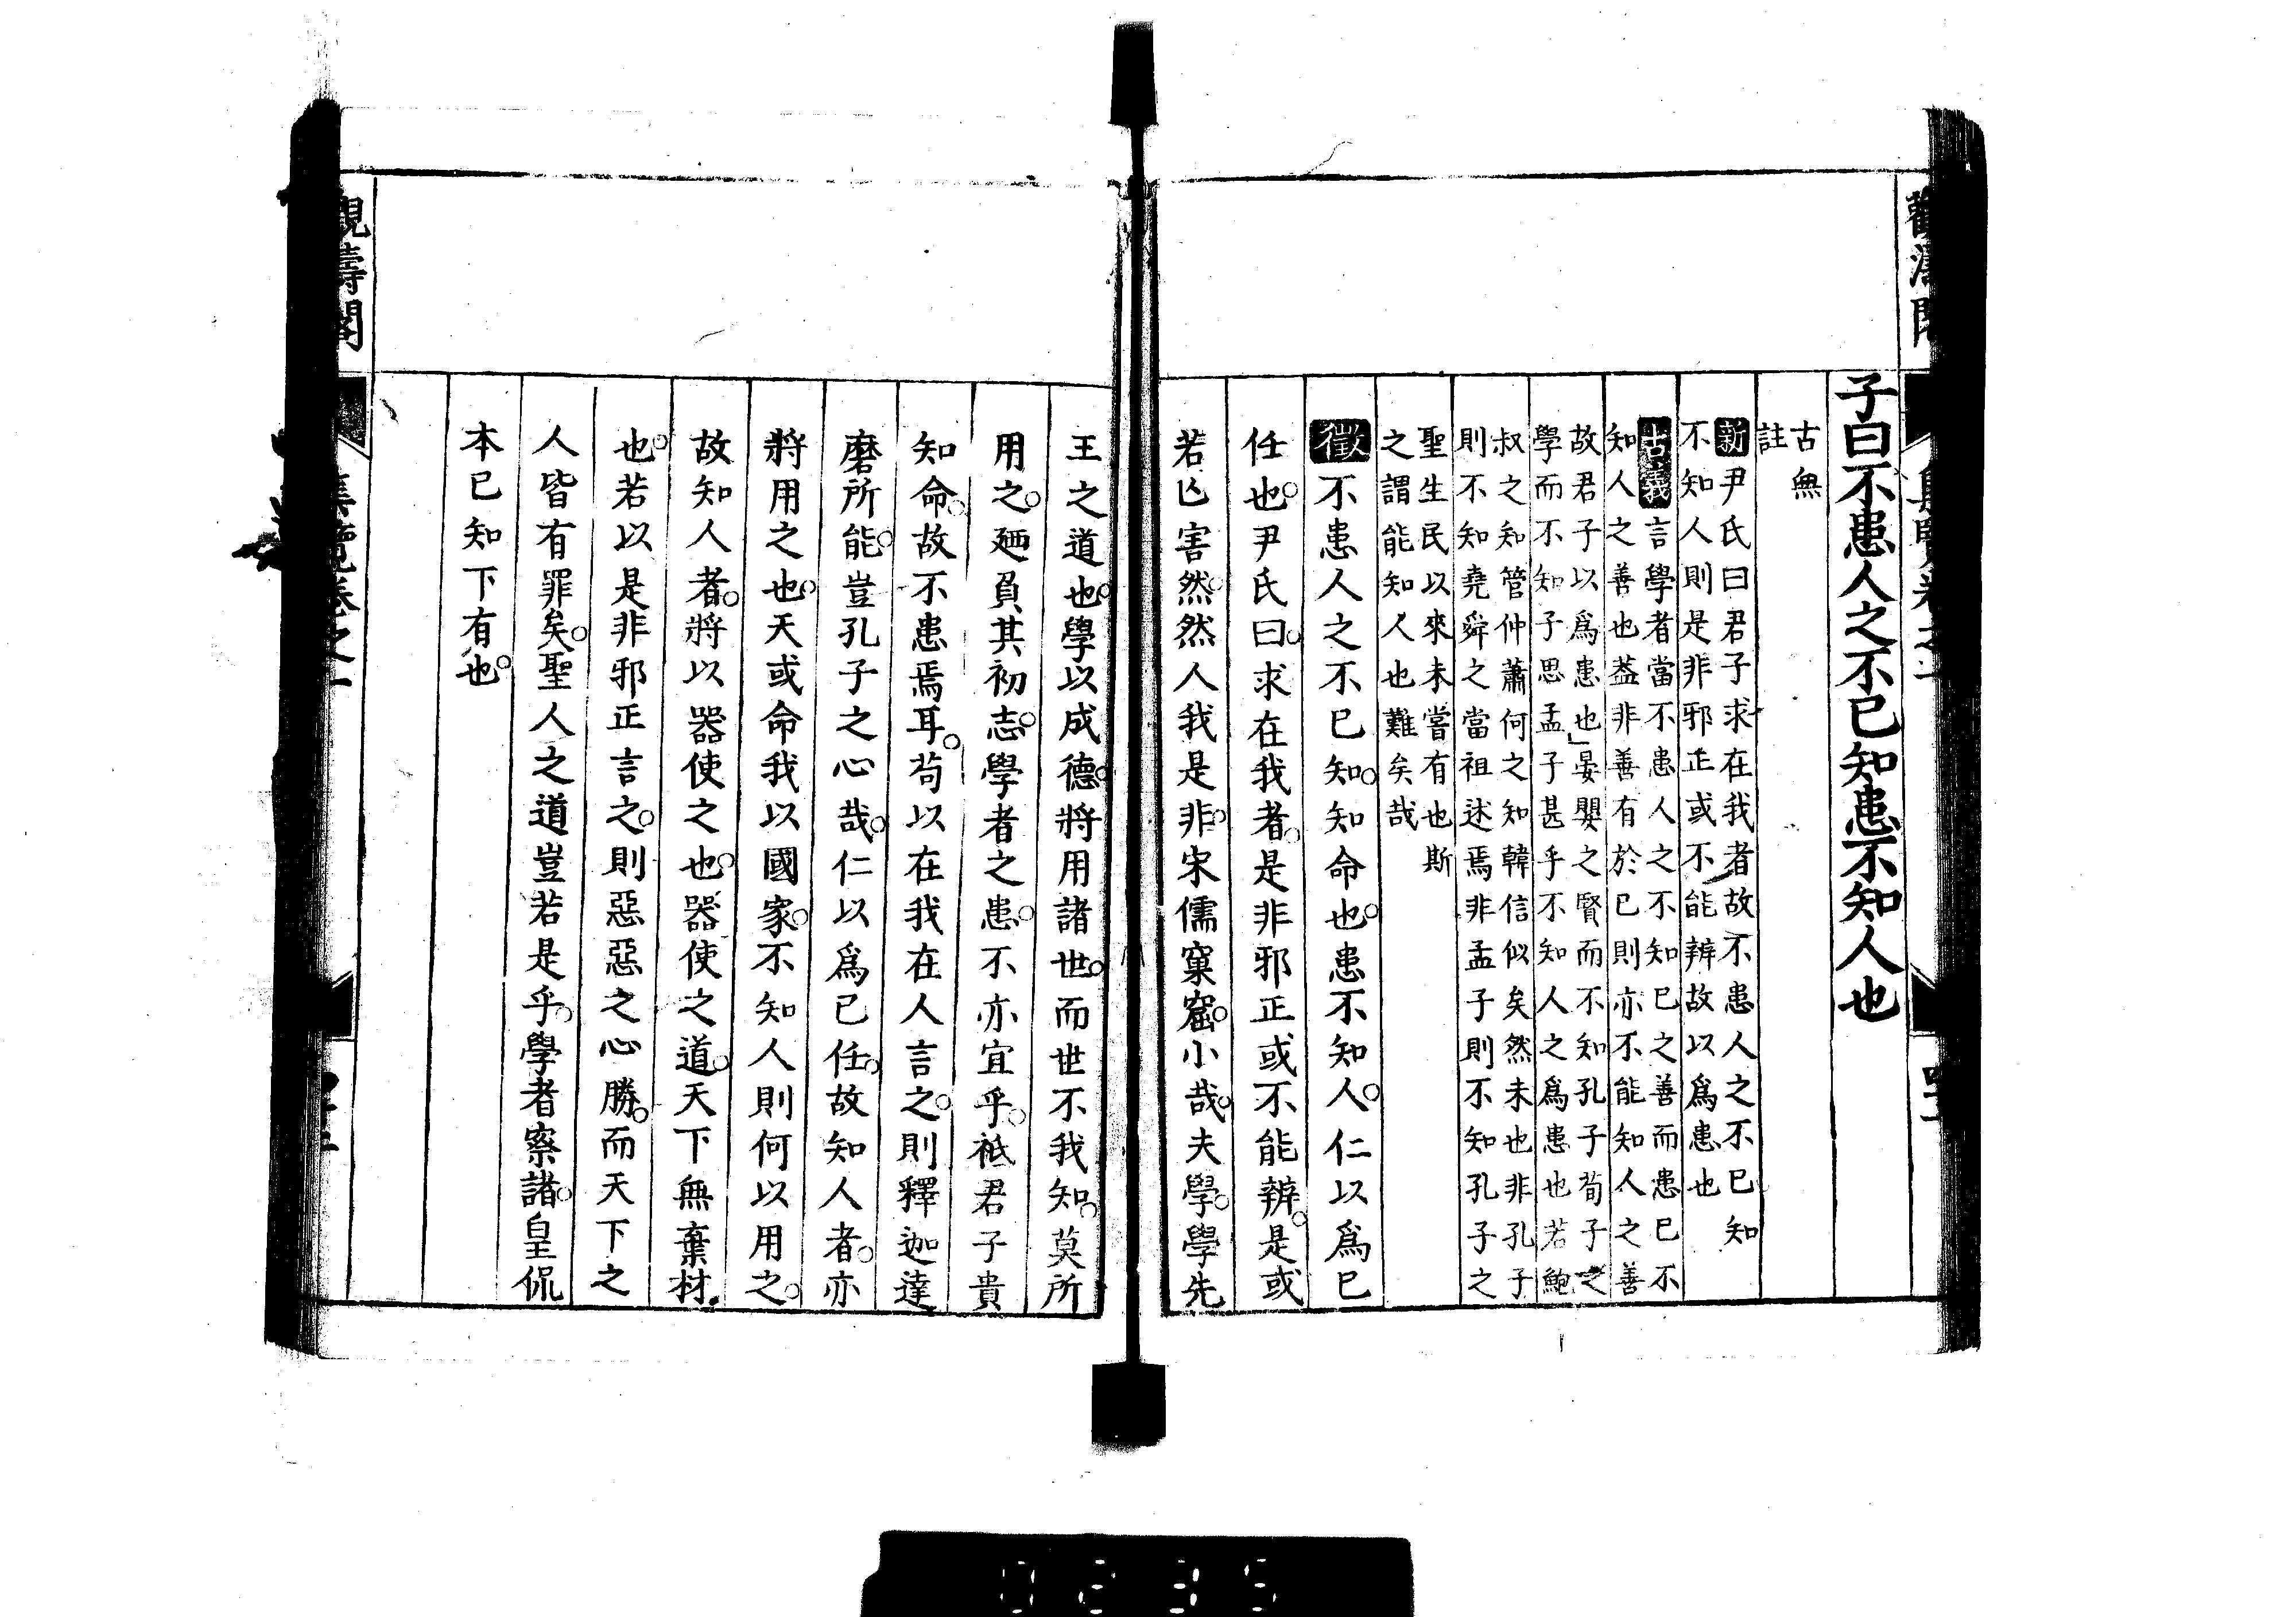 子曰不患人之不已知患不知人也
古無
註
新尹氏曰君子求在我者故不患人之不已知
不知人則是非邪正或不能辨故以爲患也
古義言學者當不患人之不知已之善而患已不
知人之善也葢非善有於已則亦不能知人之善
故君子以爲患也」晏嬰之賢而不知孔子荀子之
學而不知子思孟子甚乎不知人之爲患也若鮑
叔之知管仲蕭何之知韓信似矣然未也非孔子
則不知堯舜之當祖述焉非孟子則不知孔子之
聖生民以來未嘗有也斯
之謂能知人也難矣哉
徵不患人之不已知。知命也。患不知人。仁以爲已
任也。尹氏曰。求在我者。是非邪正或不能辨。是或
若亾害然。然人我是非。宋儒窠窟。小哉。夫學。學先
王之道也。學以成德。將用諸世。而世不我知。莫所
用之。廼負其初志。學者之患。不亦宜乎。祗君子貴
知命。故不患焉耳。苟以在我在人言之。則釋迦達
磨所能。豈孔子之心哉。仁以爲已任。故知人者。亦
將用之也。天或命我以國家。不知人則何以用之。
故知人者。將以器使之也。器使之道。天下無棄材。
也。若以是非邪正言之。則惡惡之心勝。而天下之
人皆有罪矣。聖人之道豈若是乎。學者察諸。皇侃
本已知下有也。
集覽卷之一